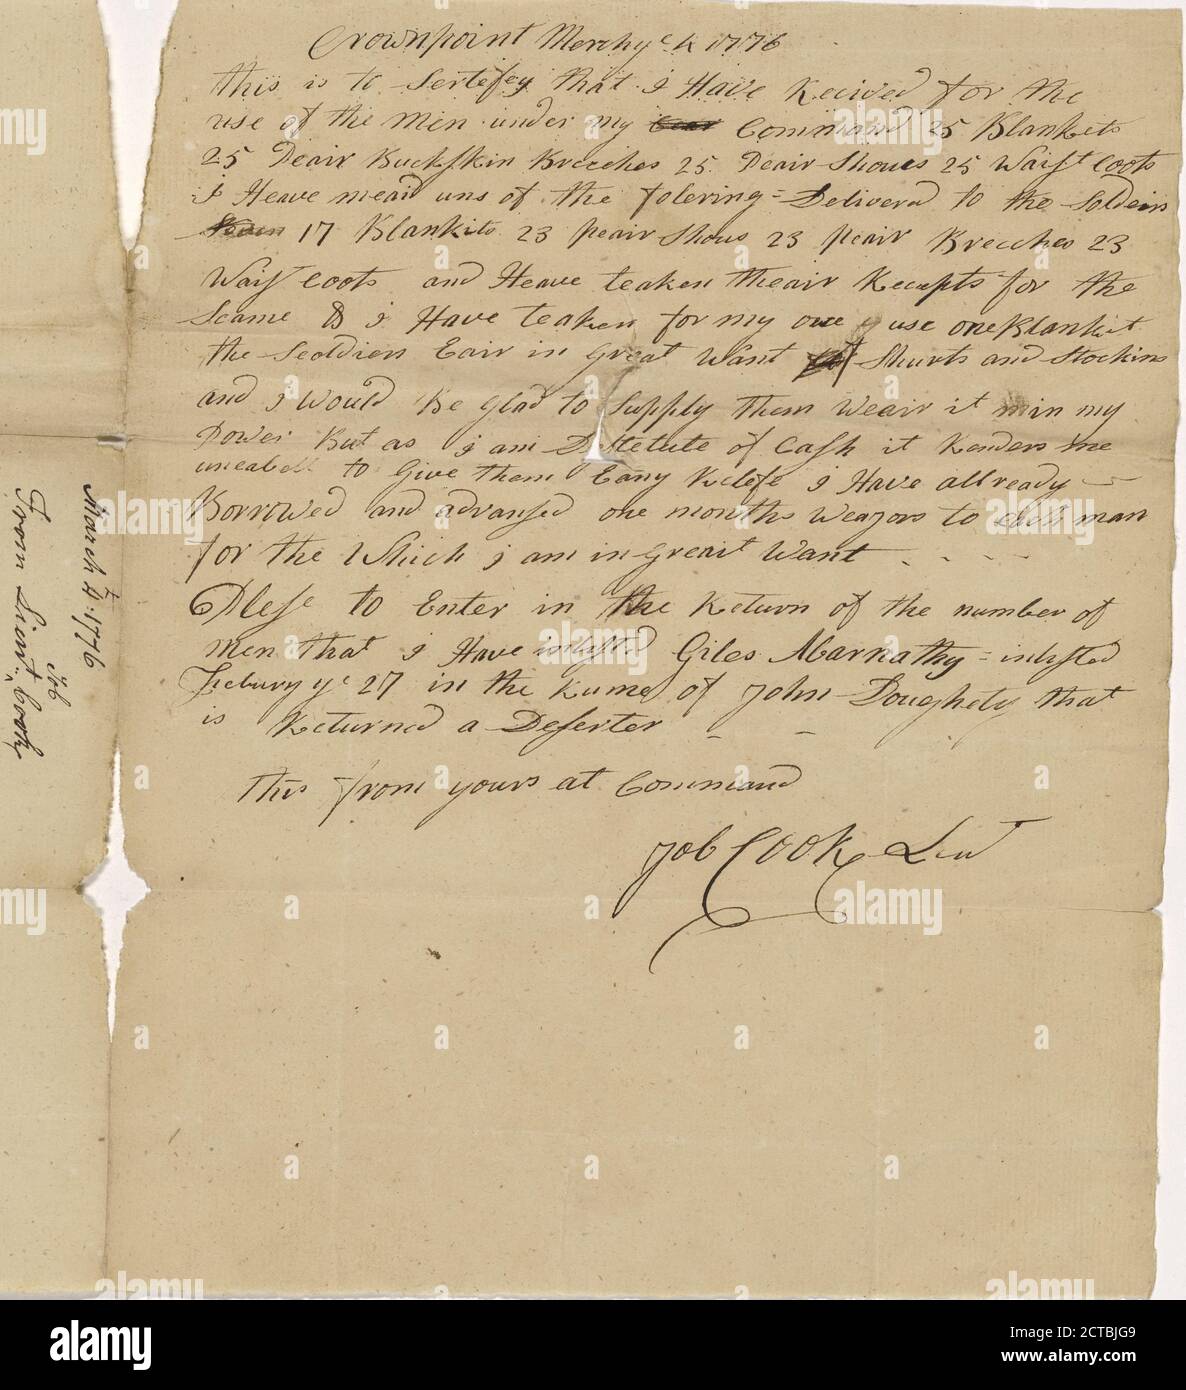 Crownpoint Merch ye 4 1776
this is to Sertefey that I Have Recived for the
use of the Men under my Command 25 Blankits
25 Peair Buckskin Breeches 25 Peair Shous 25 Waist Coots
I Heave mead uns of the folering = Delivered to the Soldeirs
17 Blankits 23 peair Shous 23 peair Breeches 23
Waist Coots and Heave teaken theair Recepts for the
Seame & I Have teaken for my own use one Blankit
the Seoldiers Eair in Great Want of Shurts and Stockins
and I Would Be Glad to Supply them Weair it in my
Power But as I am Destetute of Cash it Renders me
uneabell to Give them Eany Relefe I Have allready
Borrowed and advansed one months Weagors to each man
for the Which I am in Greait Want
Plese to Enter in the Return of the number of
Men that I Have inlisted Giles Abarnathy = inlisted
Febury ye 27 in the Rume of John Doughety that
is Returned a Deserter
This from yours at Command
Job Cook Liut
March 4: 1776
From Lieut. Job Cook
alamy
a
Image ID: 2CTBJG9
www.alamy.com